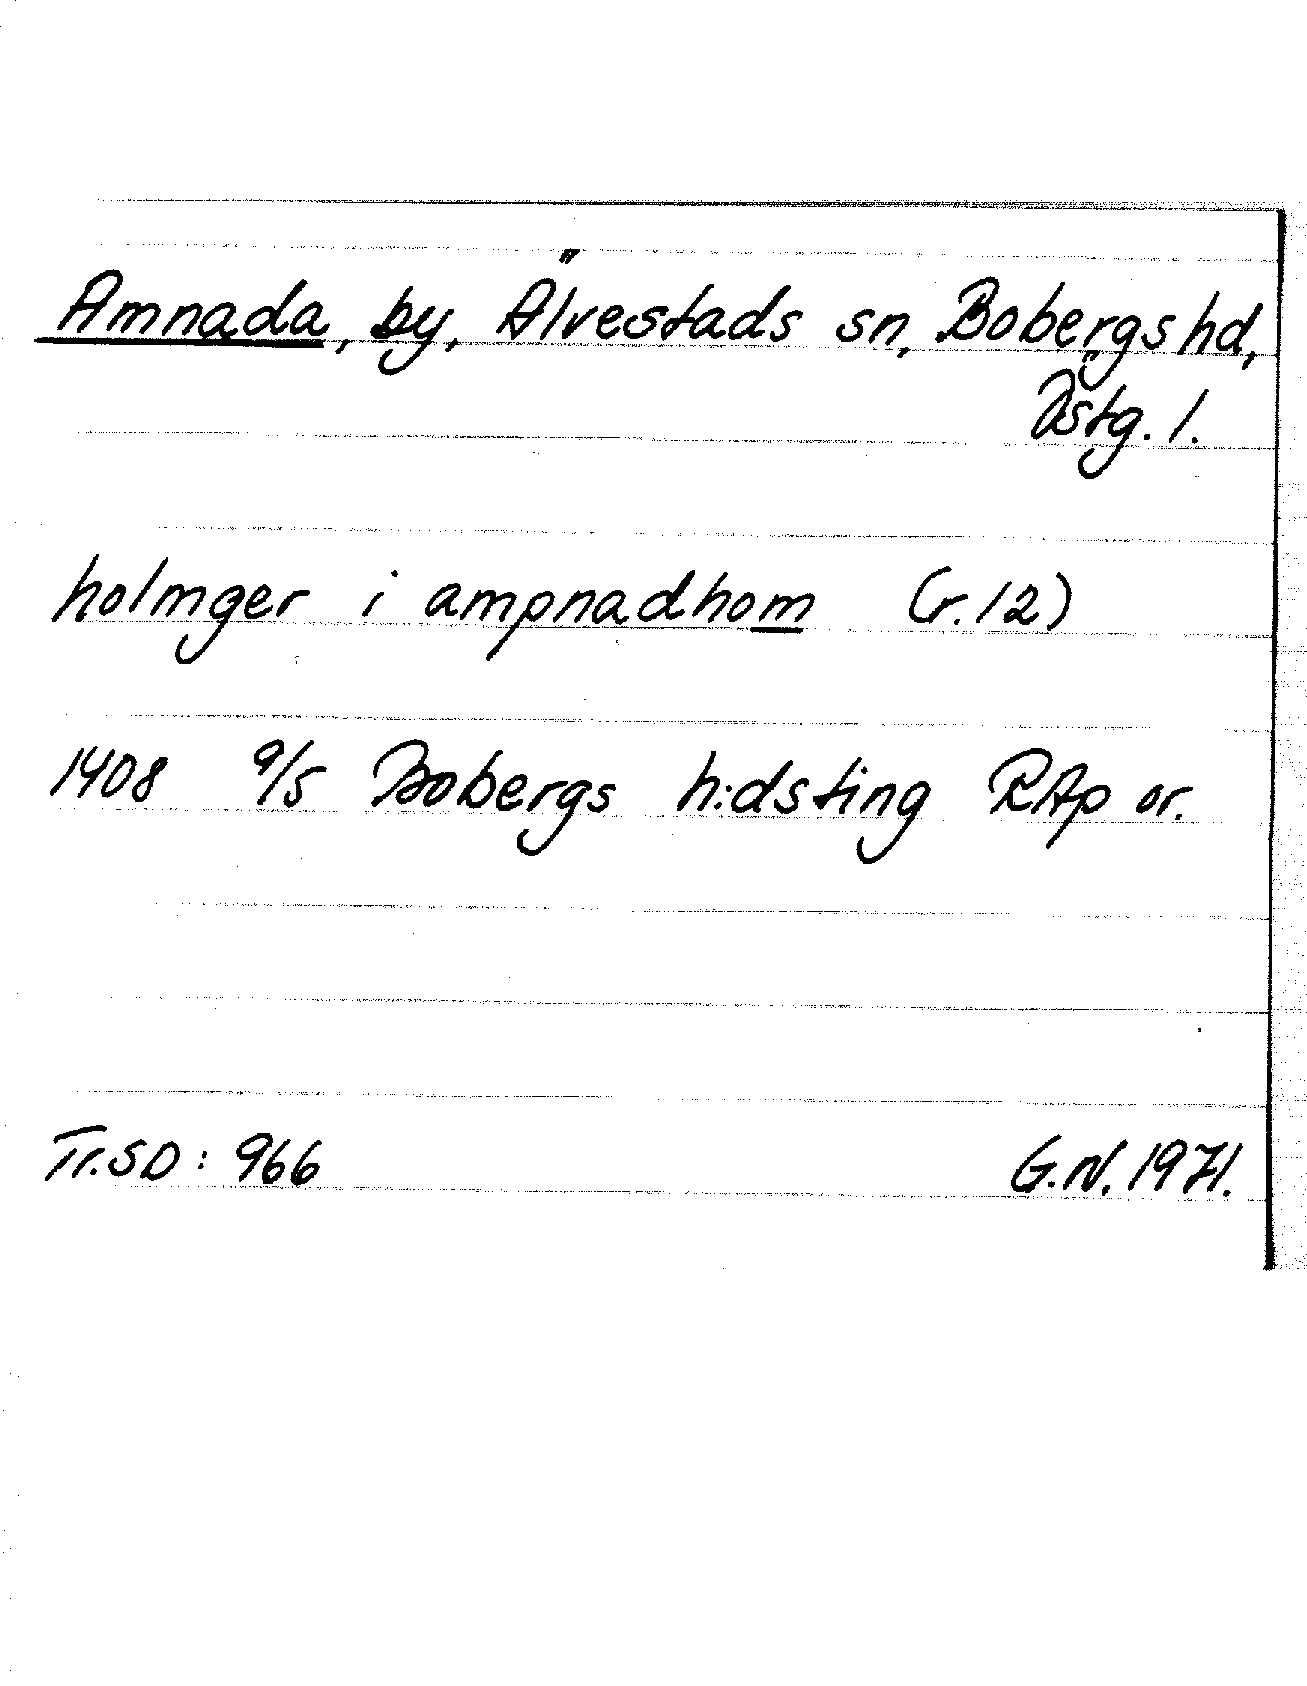 Amnada, by, Älvestads sn, Bobergs hd,
Östg. l.
holmger i ampnadhom (r. 12)
1408 9/5 Bobergs h:dsting RAp or.
Tr. SD: 966 G.N. 1971.